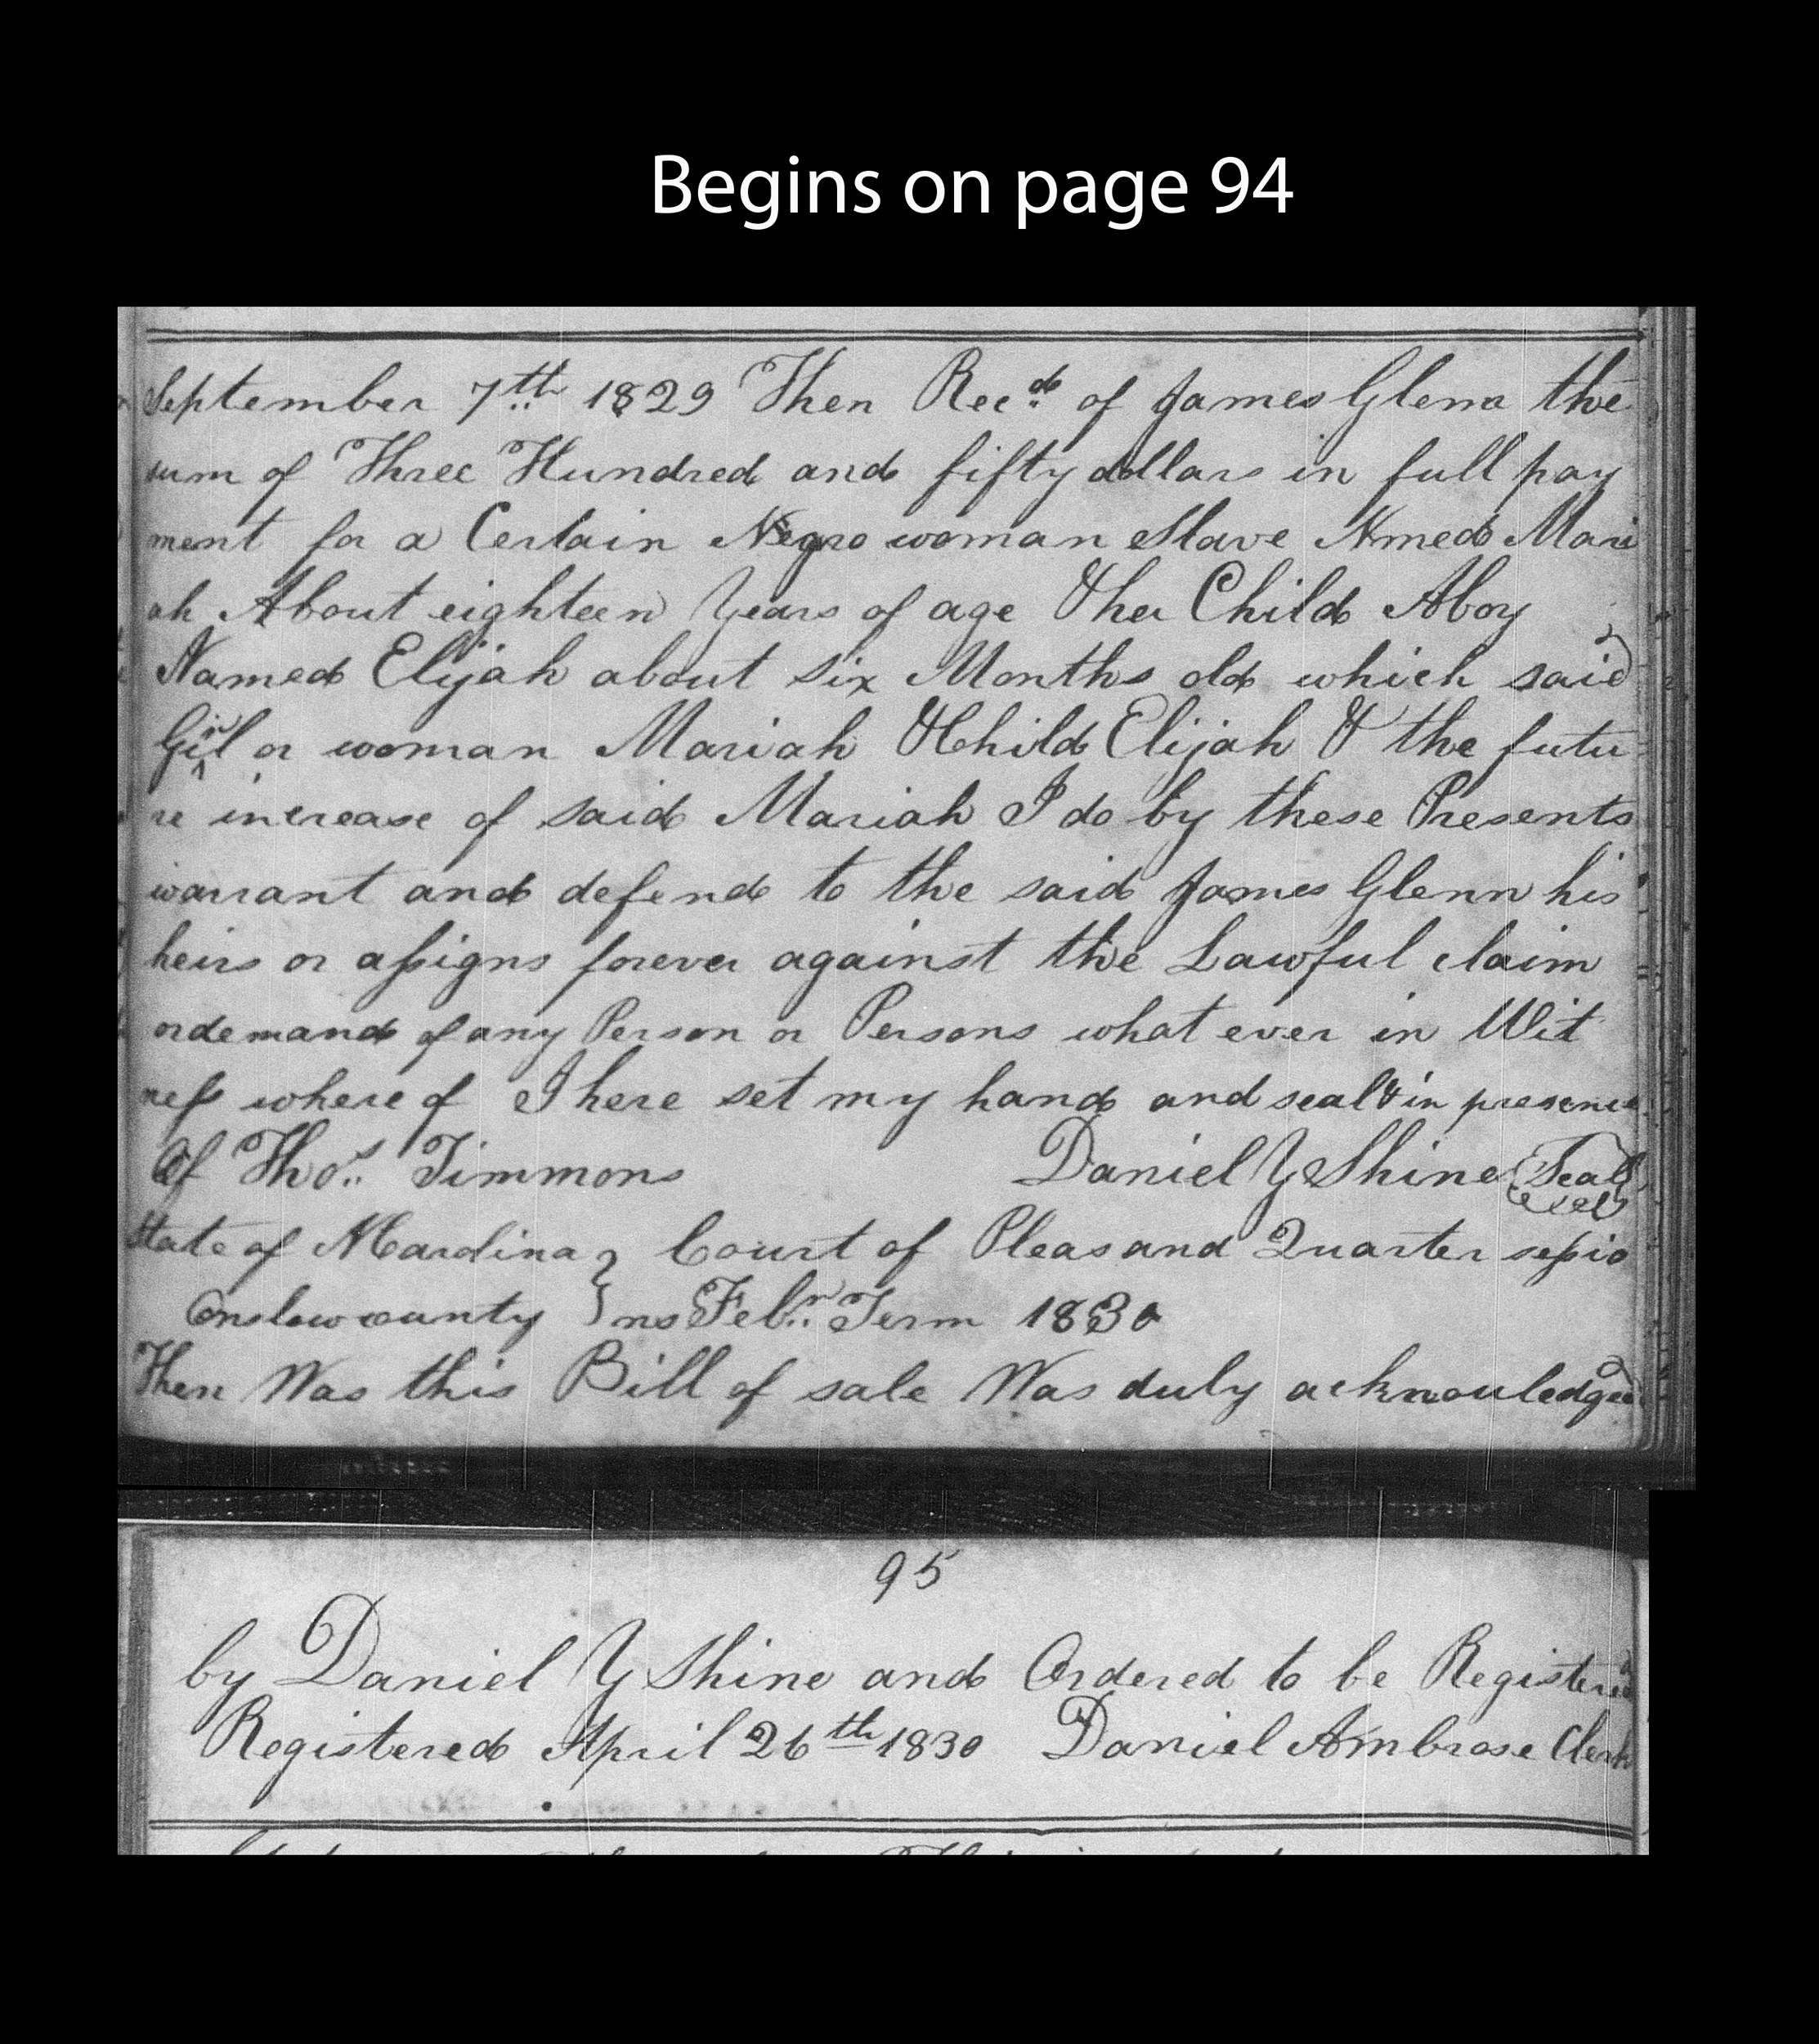 Begins on page 94
September 7th 1829 Then Recd. of James Glenn the
sum of Three Hundred and fifty dollars in full pay
ment for a Certain Negro woman Slave Nmed Mari
ah About eighteen Years of age & her Child Aboy
Named Elijah about six Months old which said
Girl or woman Mariah & Child Elijah & the futu
re increase of said Mariah I do by these Presents
warrant and defend to the said James Glenn his
heirs or assigns forever against the Lawful claim
or demand of any Person or Persons what ever in Wit
ness where of I here set my hand and seal & in presence
Of Thos. Timmons Daniel Y Shine Seal
State of NCarolina } Court of Pleas and Quarter sessio
Onslow county } ns Febr. Term 1830
Then Was this Bill of sale Was duly acknowledged
95
by Daniel Y Shine and Ordered to be Registered
Registered April 26th 1830 Daniel Ambrose Clerk